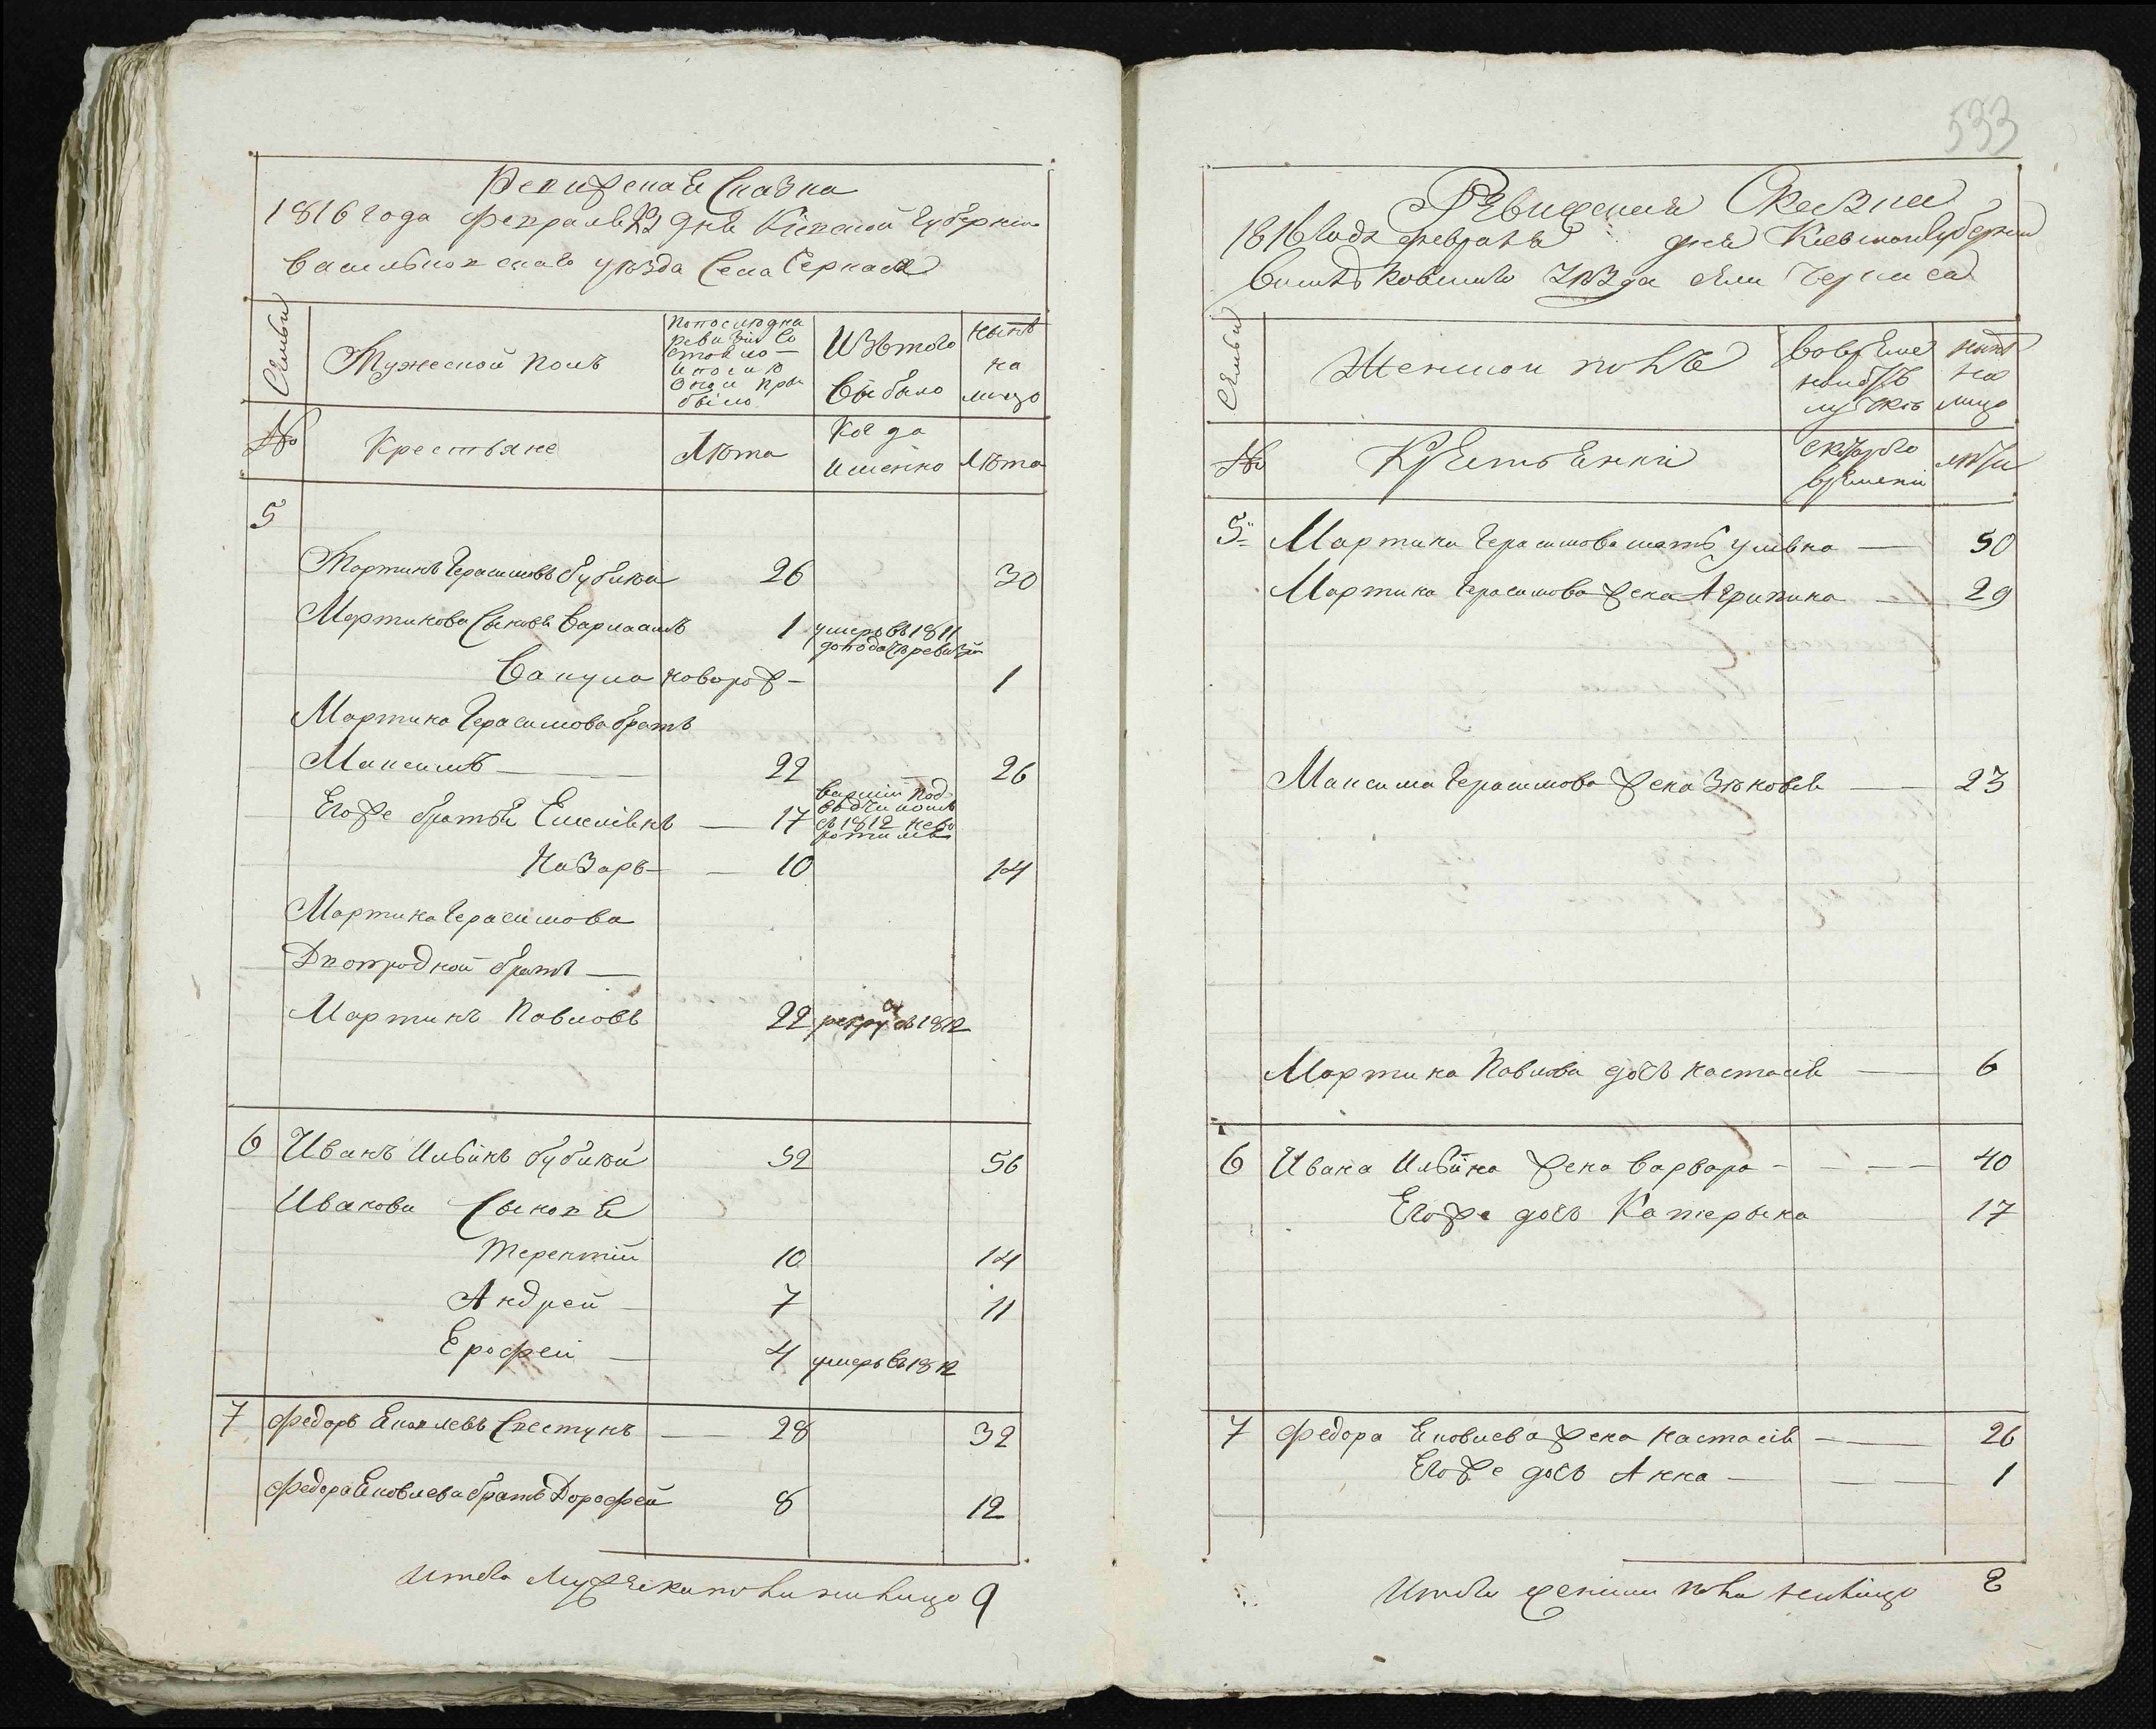 Ревизская Сказка
1816 года февраля 23 дня Кіевской Губерніи
васильковскаго уѣзда Села Черкаса
Семьи
Мужеской полъ
По последней
ревизіи со
стояло
и после
оной при
было
Изътого
выбыло
ныне
на
лицо
№
Крестьяне
Лѣта
Когда
именно
Лѣта
5
Мартинъ Герасимовъ бубика 26 30
Мартинова Сыновя Варлаамъ 1 умеръ въ 1811
до подачѣ ревизій
Вакула новорож 1
Мартина Герасимова братъ
Максимъ 22 26
Егоже братья Емеліянъ 17
въ 1812 нево
ротился
Назаръ 10 14
Мартина Герасимова
Двоюродной братъ
Мартинъ Павловъ 22 рекру въ 1812
6 Иванъ Ильинъ бубика 52 56
Иванови Сыновя
Терентій 10 14
Андрей 7 11
Ерофей 4 умеръ въ 1812
7 Федоръ Яковлевъ Свестунъ 28 32
Федора Яковлева братъ Дорофей 8 12
Итого Мужеска пола налицо 9
533
Ревиская Сказка
1816 года февраля дня Кіевской Губерніи
Васильковского уѣзда села Черкаса
Семьи
Женской полъ
Во время
отлучкѣ
ныне
на
лицо
№
Крестьянки
с которого
времени
лѣта
5 Мартина Герасимова мать уліяна 50
Мартина Герасимова жена Агрипина 29
Максима Герасимова жена Зѣновія 23
Мартина Павлова дочь настасія 6
6 Ивана Ильина жена варвара 40
Егоже дочь Катерына 17
7 Федора Яковлева жена настасія 26
Егоже дочь Анна 1
Итого женска пола налицо 8